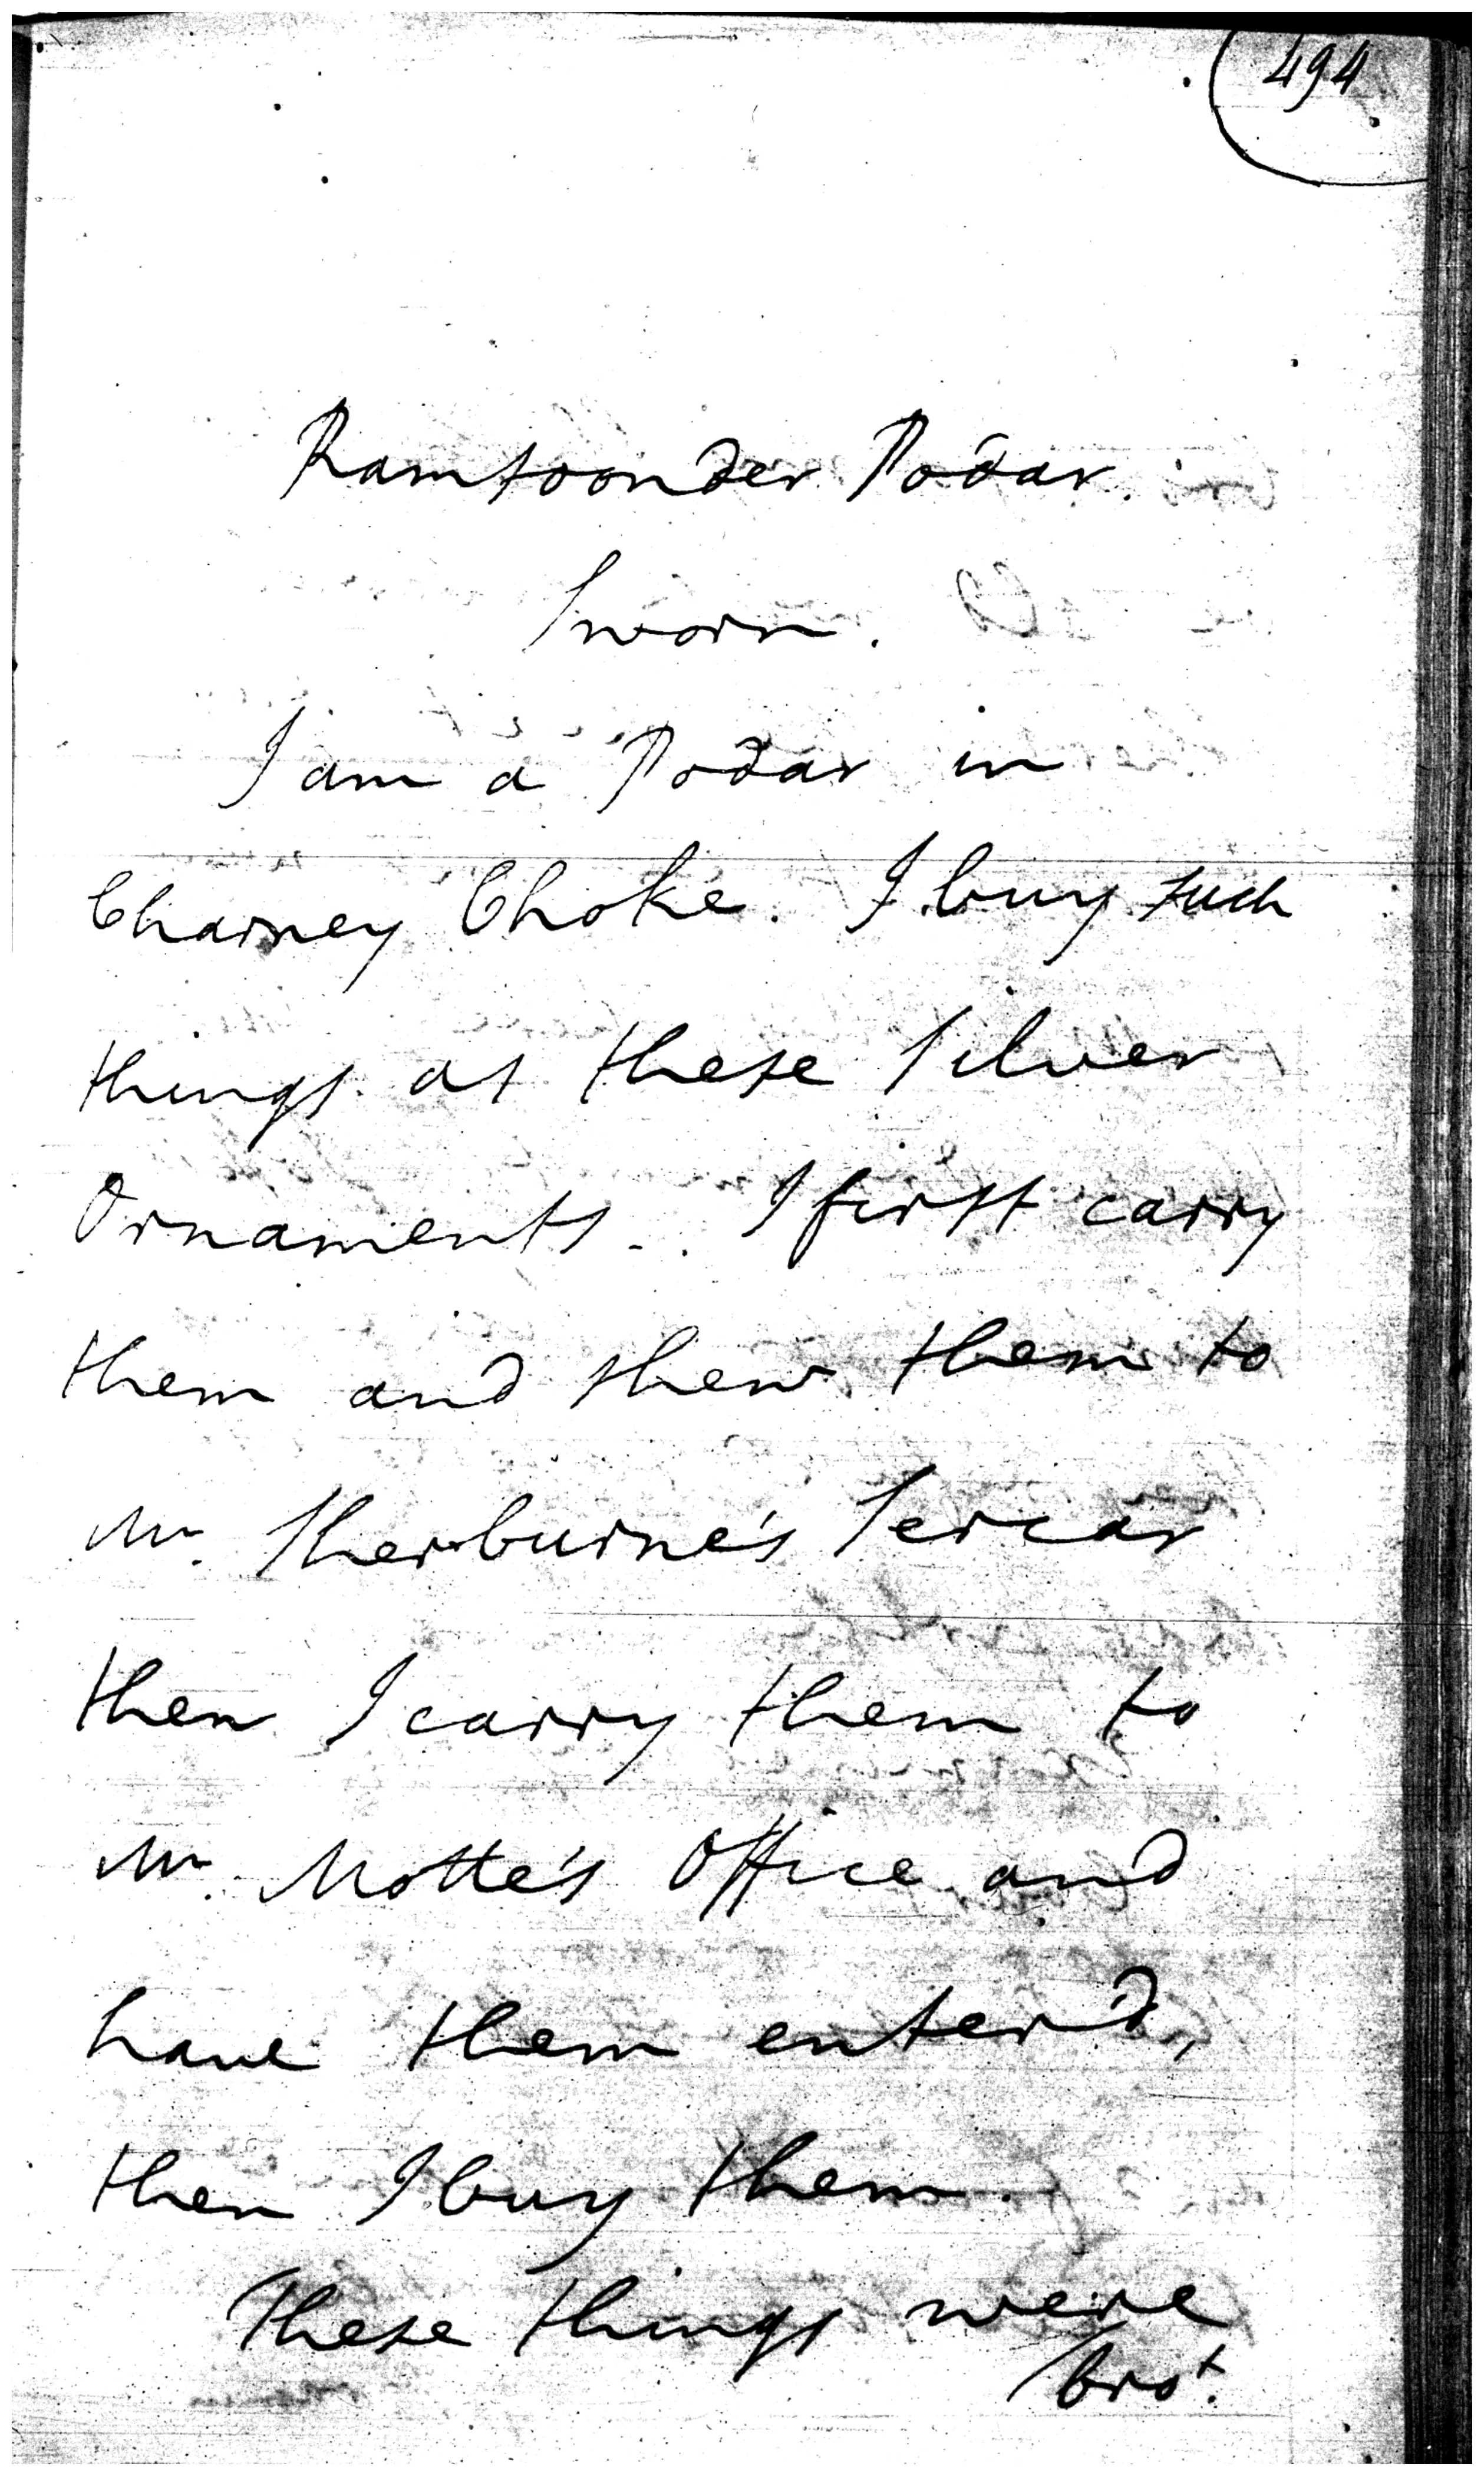 494
Ramsoonder Podar.
Sworn.
I am a Podar in
Chainey Choke. I buy such
things as these Silver
Ornaments. I first carry
them and shew them to
Mr. Sherburne's Sercar
then I carry them to
Mr. Motte's Office and
have them enter'd,
then I buy them.
These things were
bro.t